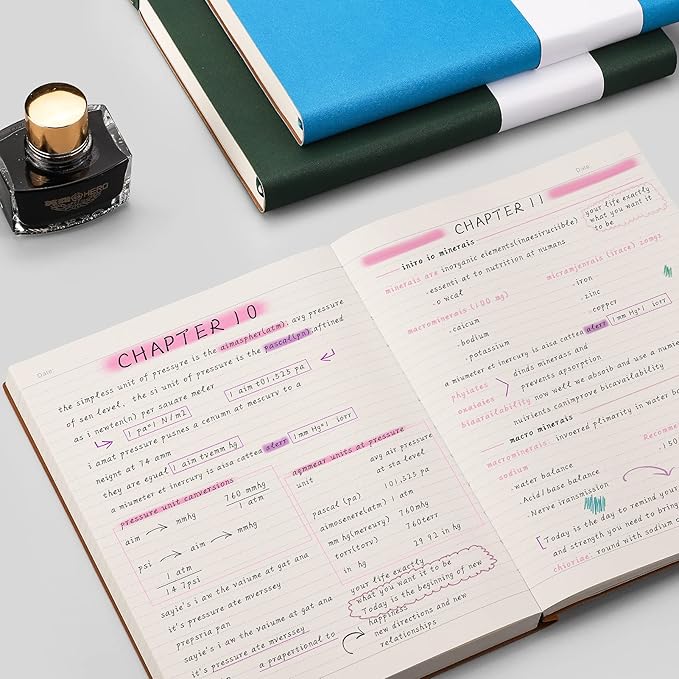 HERO
Date:
CHAPTER 10
the simpless unit of pressyre is the aimaspher(atm); avg pressure
of sen level, the si unit of pressure is the pascal(pn); aftined
as i newten(n) per sauare meler
1 pa=1 N/m2
1 aim to1,525 pa
i amat pressure pusnes a cenumn at mescurv to a
neignt at 74 amm
they are equal 1 aim tvemm hg
a miumeter et inercury is aisa cattea aterr 1 mm Hg=1 iorr
pressure unit canversions
aim → mmhg
760 mmhg
1 atm
psi → aim → mmhg
1 atm
14.7psi
sayie's i aw the vaiume at gat ana
it's pressure ate mverssey
prepsria pan
sayie's i aw the vaiume at gat ana
it's pressure ate mverssey
a prapertional to
agmmear units at pressure
unit
avg air pressure
at sta level
pascal (pa) 101,525 pa
aimosenere(atm) 1 atm
mm hg(mereury) 760mhg
torr(torv) 760terr
in hg 29 92 in hg
your life exactly
what you want it to be
Today is the beginning of new
happiness
new directions and new
relationships
Date:
CHAPTER 11
your life exactly
what you want it
to be
iniro io minerais
minerais are inorganic elements(inaesiruciible)
. essenti at to nutrition at humans
. o wcal
macrominerais (100 mg)
. caicum
. bodium
. potassium
micramjenrais (irace) 20mgz
. iron
. zinc
. copper
a miumeter et inercury is aisa cattea aterr 1 mm Hg=1 iorr
phyiates
oxaiaies
dinds minerass and
prevents apsorption
biaavaiiability now well we absoib and use a nume
nuirients canimprove bicavaiiability
macro minerais
macrominerais. invoered plimarity in water b
sodium
Recomme
. 150
water balance
. Acid/base balance
. Nerve transmission
Today is the day to remind your
and strength you need to bring
chioriae: round with sodium c